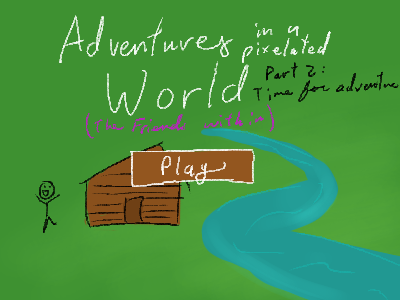 Adventures in a
pixelated
World
Part 2:
Time for adventure
(The Friends within)
Play